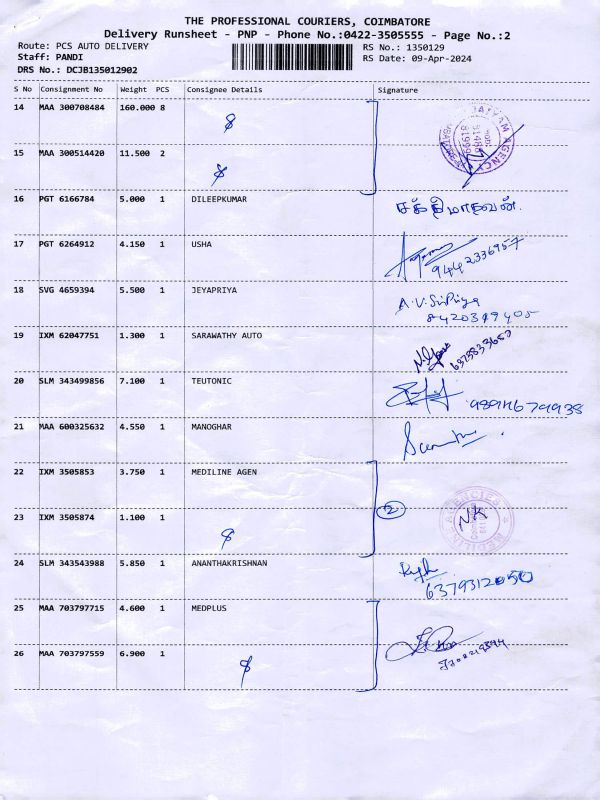 THE PROFESSIONAL COURIERS, COIMBATORE
Delivery Runsheet - PNP - Phone No.:0422-3505555 - Page No.:2
Route: PCS AUTO DELIVERY RS No.: 1350129
Staff: PANDI RS Date: 09-Apr-2024
DRS No.: DCJB135012902
S No Consignment No Weight PCS Consignee Details Signature
14 MAA 300708484 160.000 8
15 MAA 300514420 11.500 2
16 PGT 6166784 5.000 1 DILEEPKUMAR சக்திமாதவன்.
17 PGT 6264912 4.150 1 USHA
9442336957
18 SVG 4659394 5.500 1 JEYAPRIYA A.V.SriPriya
8420349405
19 IXM 62047751 1.300 1 SARAWATHY AUTO
20 SLM 343499856 7.100 1 TEUTONIC
21 MAA 600325632 4.550 1 MANOGHAR
22 IXM 3505853 3.750 1 MEDILINE AGEN
2
NK
23 IXM 3505874 1.100 1
24 SLM 343543988 5.850 1 ANANTHAKRISHNAN
25 MAA 703797715 4.600 1 MEDPLUS
26 MAA 703797559 6.900 1